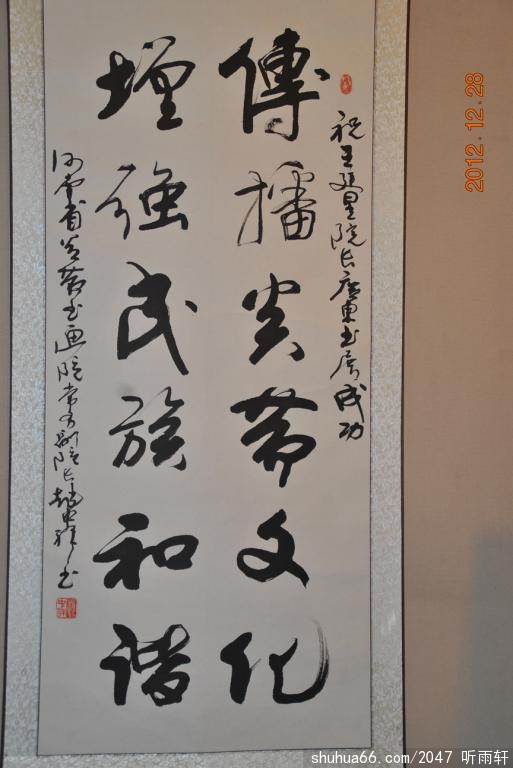 祝王星院长廣東书展成功
傳播炎黄文化
增强民族和谐
河南省炎黄书画院常务副院长赵书
2012.12.28
shuhua66.com/2047 听雨轩